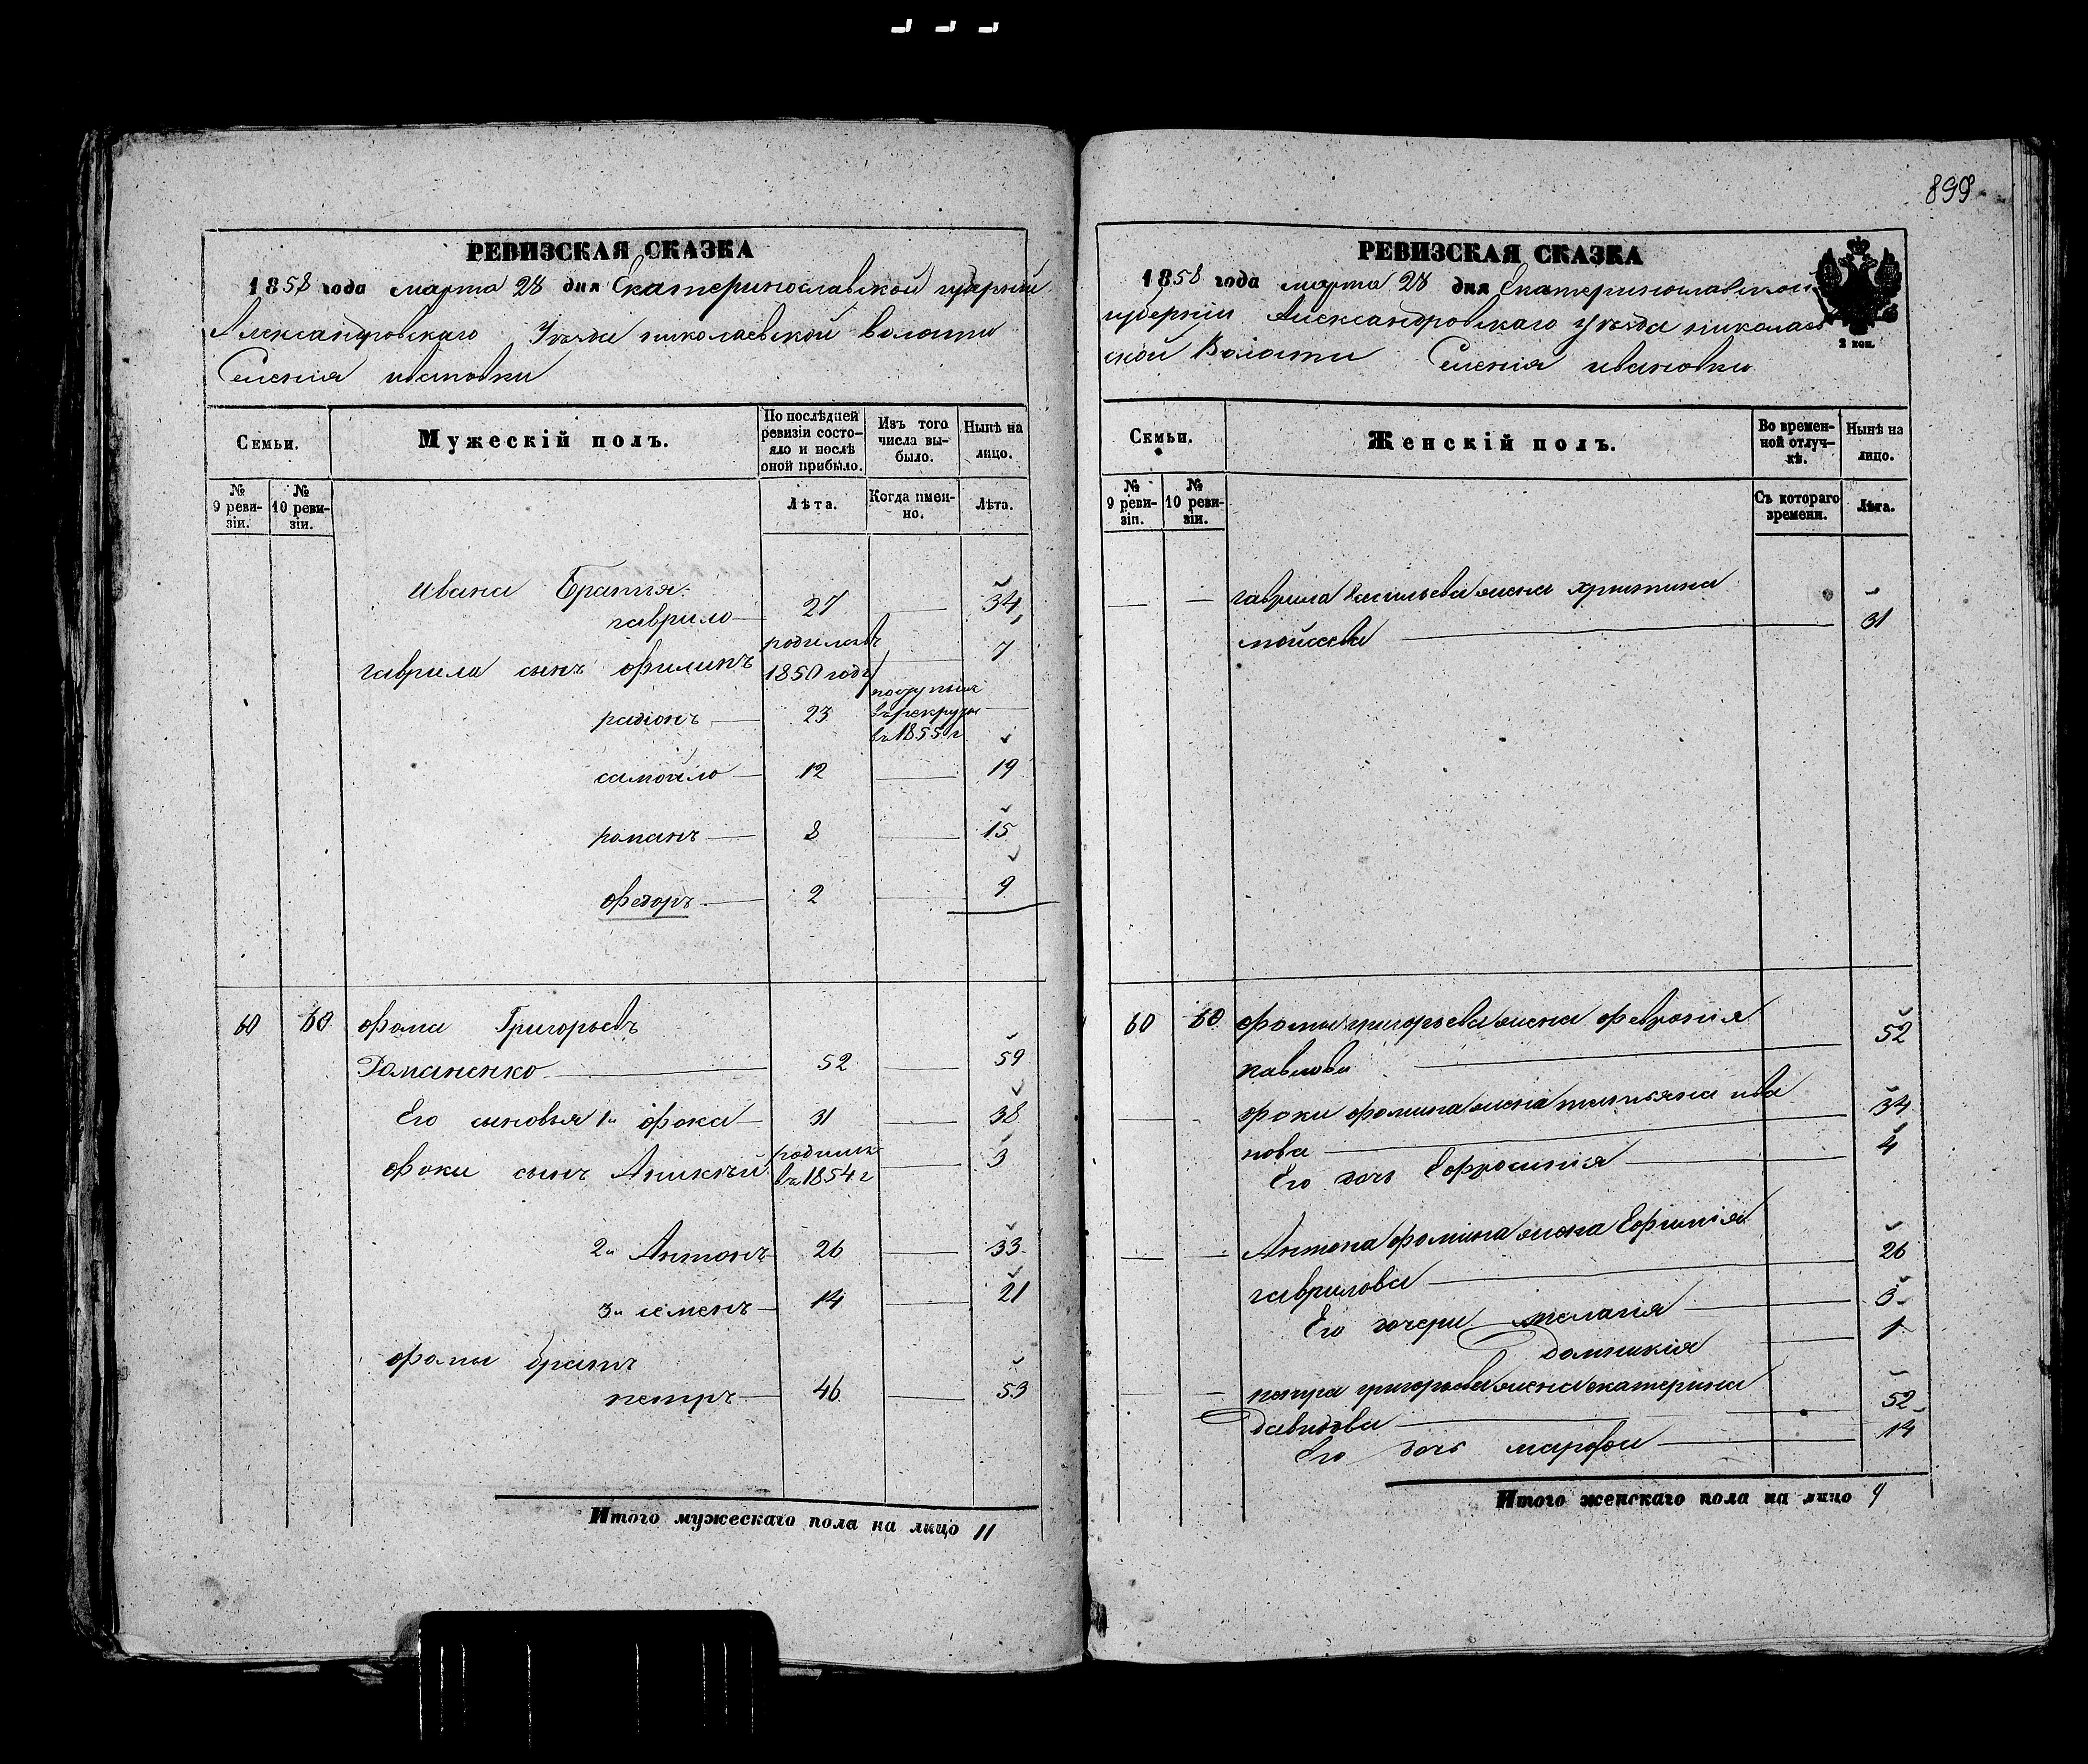 899
РЕВИЗСКАЯ СКАЗКА
1858 года марта 28 дня Екатеринославской губернии
Александровскаго Уезда николаевской волости
Селенія ивановки
Семьи.
Мужескій полъ.
По послѣдней ревизіи состо-
яло и послѣ оной прибыло.
Изъ того числа вы-
было.
Нынѣ на лицо.
№ 9 реви-
зіи.
№ 10 реви-
зіи.
Лѣта.
Когда имен-
но.
Лѣта.
ивана Братья:
гаврило 27 34
гаврила сынъ филипъ родился въ 1850 годѣ 7
радіонъ 23 поступил въ рекруты въ 1855 г
самойло 12 19
романъ 8 15
федоръ 2 9
60 60 фома Григорьевъ
Романенко 52 59
Его сыновья 1й фока 31 38
фоки сынъ Аникѣй родился въ 1854 г 3
2й Антонъ 26 33
3й семенъ 14 21
фомы братъ
петръ 46 53
Итого мужескаго пола на лицо 11
РЕВИЗСКАЯ СКАЗКА
1858 года марта 28 дня Екатеринославской
губерніи Александровскаго уезда николаев
ской Волости Селенія ивановки
2 коп.
Семьи.
Женскій полъ.
Во времен-
ной отлуч-
кѣ.
Нынѣ на лицо.
№ 9 реви-
зіи.
№ 10 реви-
зіи.
Съ котораго времени.
Лѣта.
гаврила Васильева жена христина
мойсеева 31
60 60 фомы григорьева жена феврония
павлова 52
фоки фомина жена татьяна ива
нова 34
Его дочь Ефросинія 4
Антона фомина жена Ефимія
гаврилова 26
Его дочери меланія 3
домникія 1
петра григорьева жена екатерина
давидова 52
Его дочь марфа 14
Итого женскаго пола на лицо 9